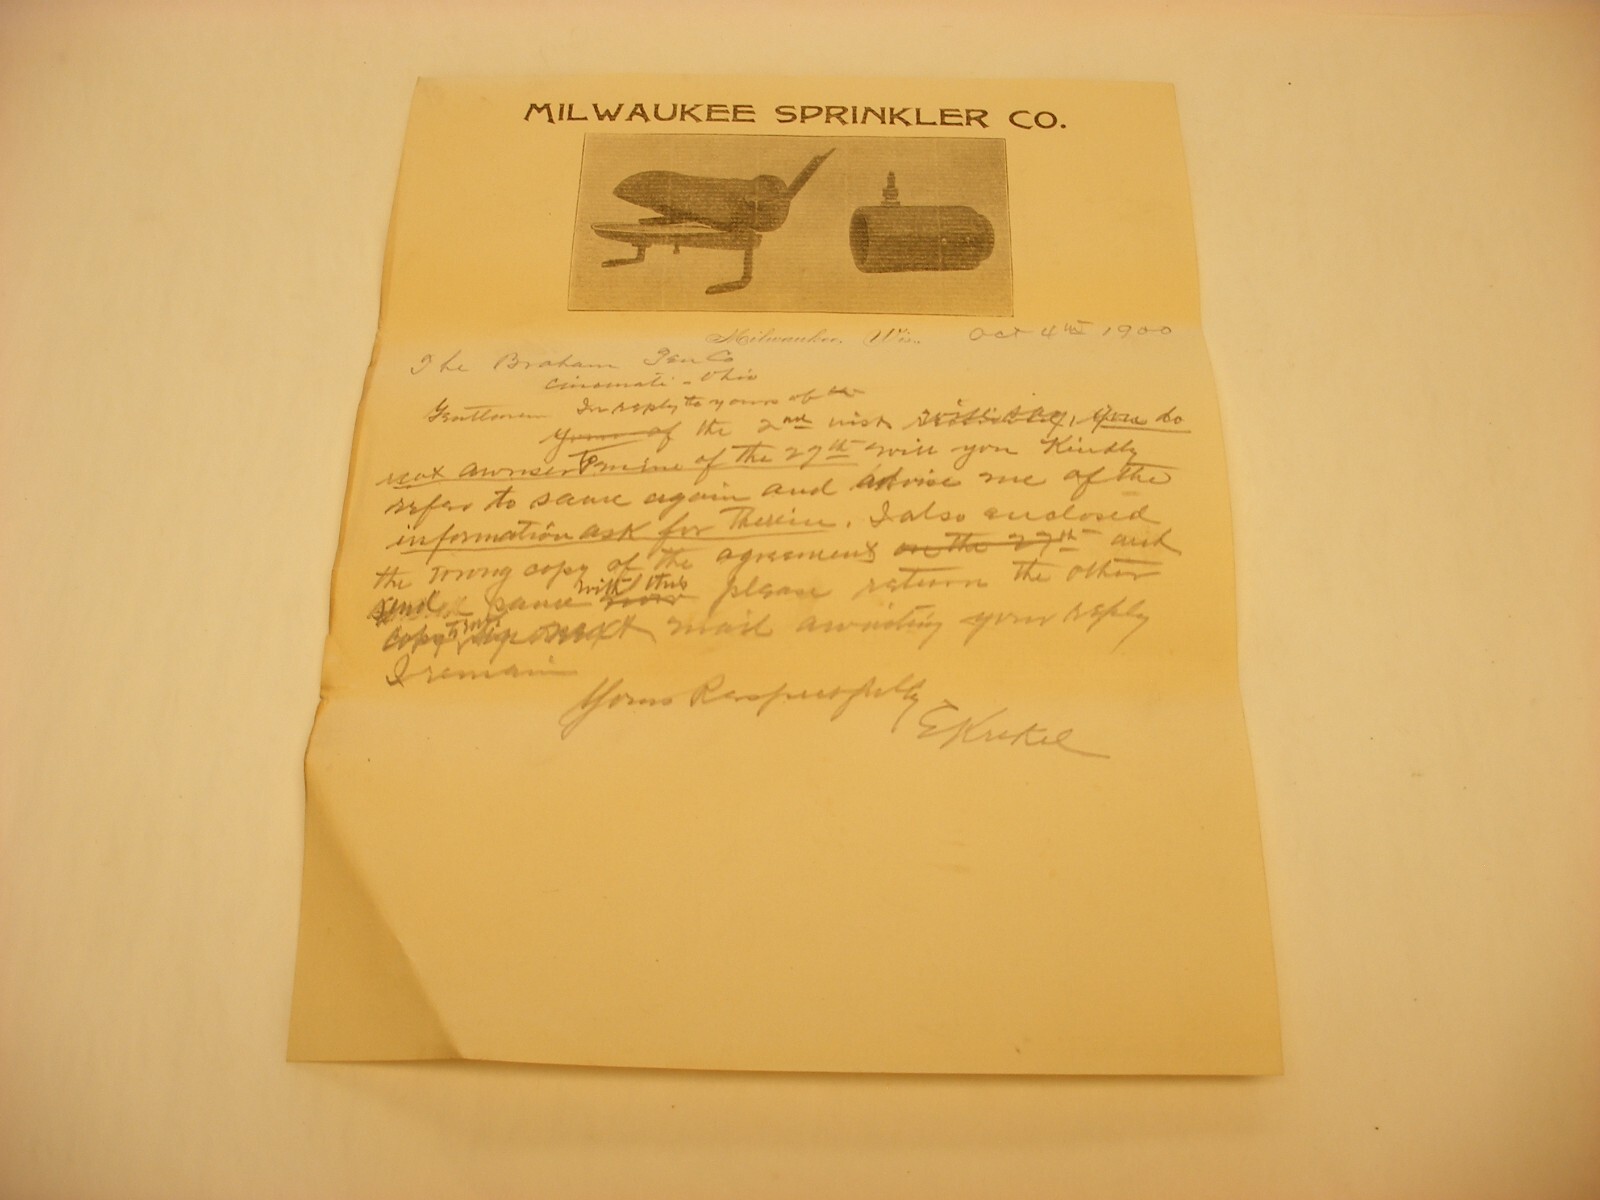 MILWAUKEE SPRINKLER CO.
Milwaukee, Wis., Oct 4th 1900
The Braham Pen Co
Cincinnati - Ohio
Gentlemen In reply to yours of the
yours of the 2nd inst will say, you do
not awnser mine of the 27th will you Kindly
refer to same again and advise me of the
information ask for Therein. I also enclosed
the wrong copy of the agreement on the 27th and
send same with this now please return the other
copy mail awaiting your reply
I remain
Yours Respectfully
E Krekel